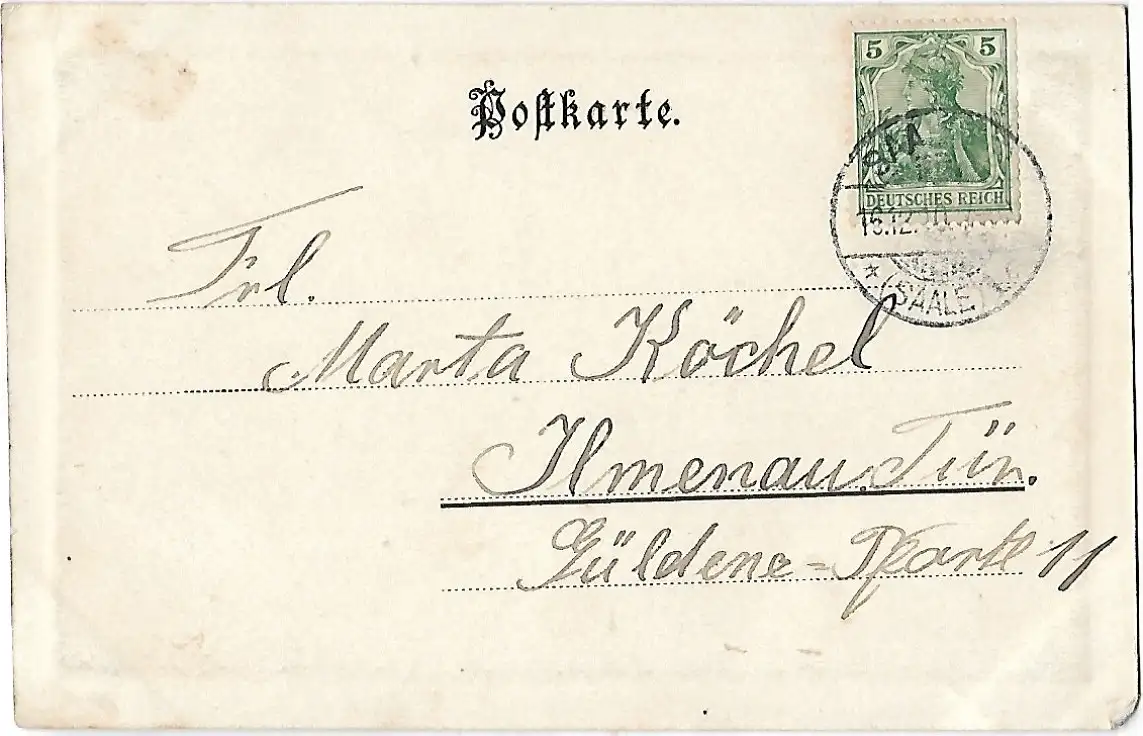 Postkarte.
5 5
DEUTSCHES REICH
16.12.10.
(SAALE)
Frl.
Marta Köchel
Ilmenau. Tür.
Güldene-Pfarte 11